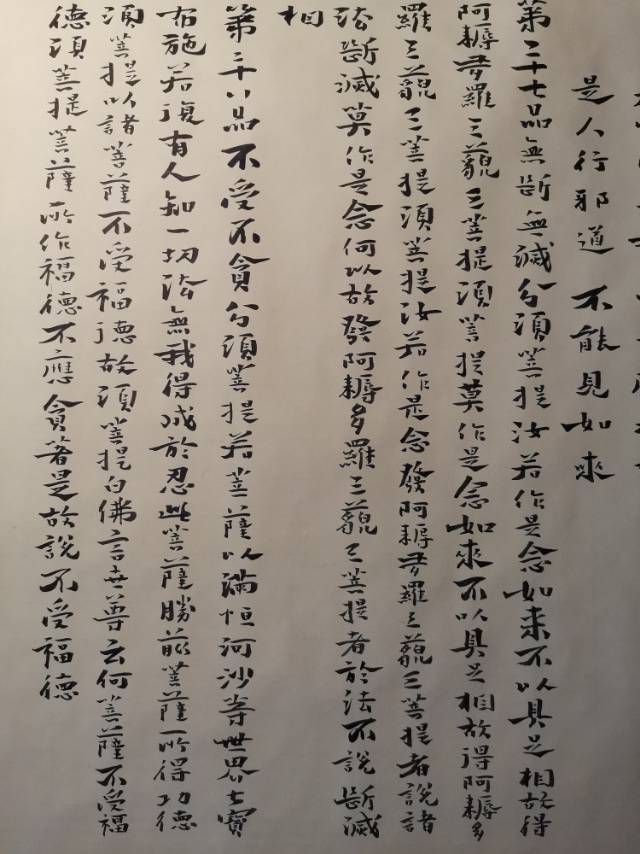 是人行邪道 不能見如來
第二十七品無斷無滅分須菩提汝若作是念如来不以具足相故得
阿耨多羅三藐三菩提須菩提莫作是念如來不以具足相故得阿耨多
羅三藐三菩提須菩提汝若作是念發阿耨多羅三藐三菩提者說諸
法斷滅莫作是念何以故發阿耨多羅三藐三菩提者於法不說斷滅
相
第二十八品不受不貪分須菩提若菩薩以滿恒河沙等世界七寶
布施若復有人知一切法無我得成於忍此菩薩勝前菩薩所得功德
須菩提以諸菩薩不受福德故須菩提白佛言世尊云何菩薩不受福
德須菩提菩薩所作福德不應貪著是故說不受福德